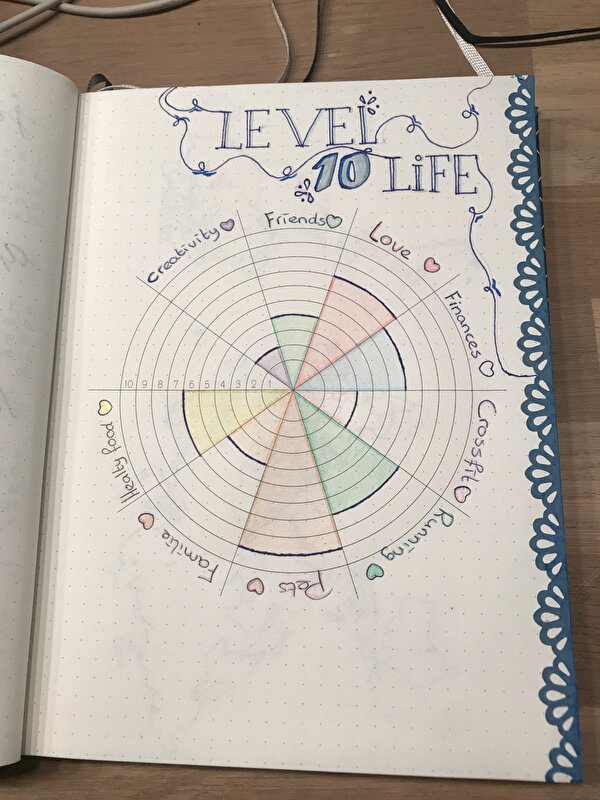 LEVEL
10 LiFE
Creativity
Friends
Love
Finances
Crossfit
Running
Pets
Familie
Healty food
10 9 8 7 6 5 4 3 2 1